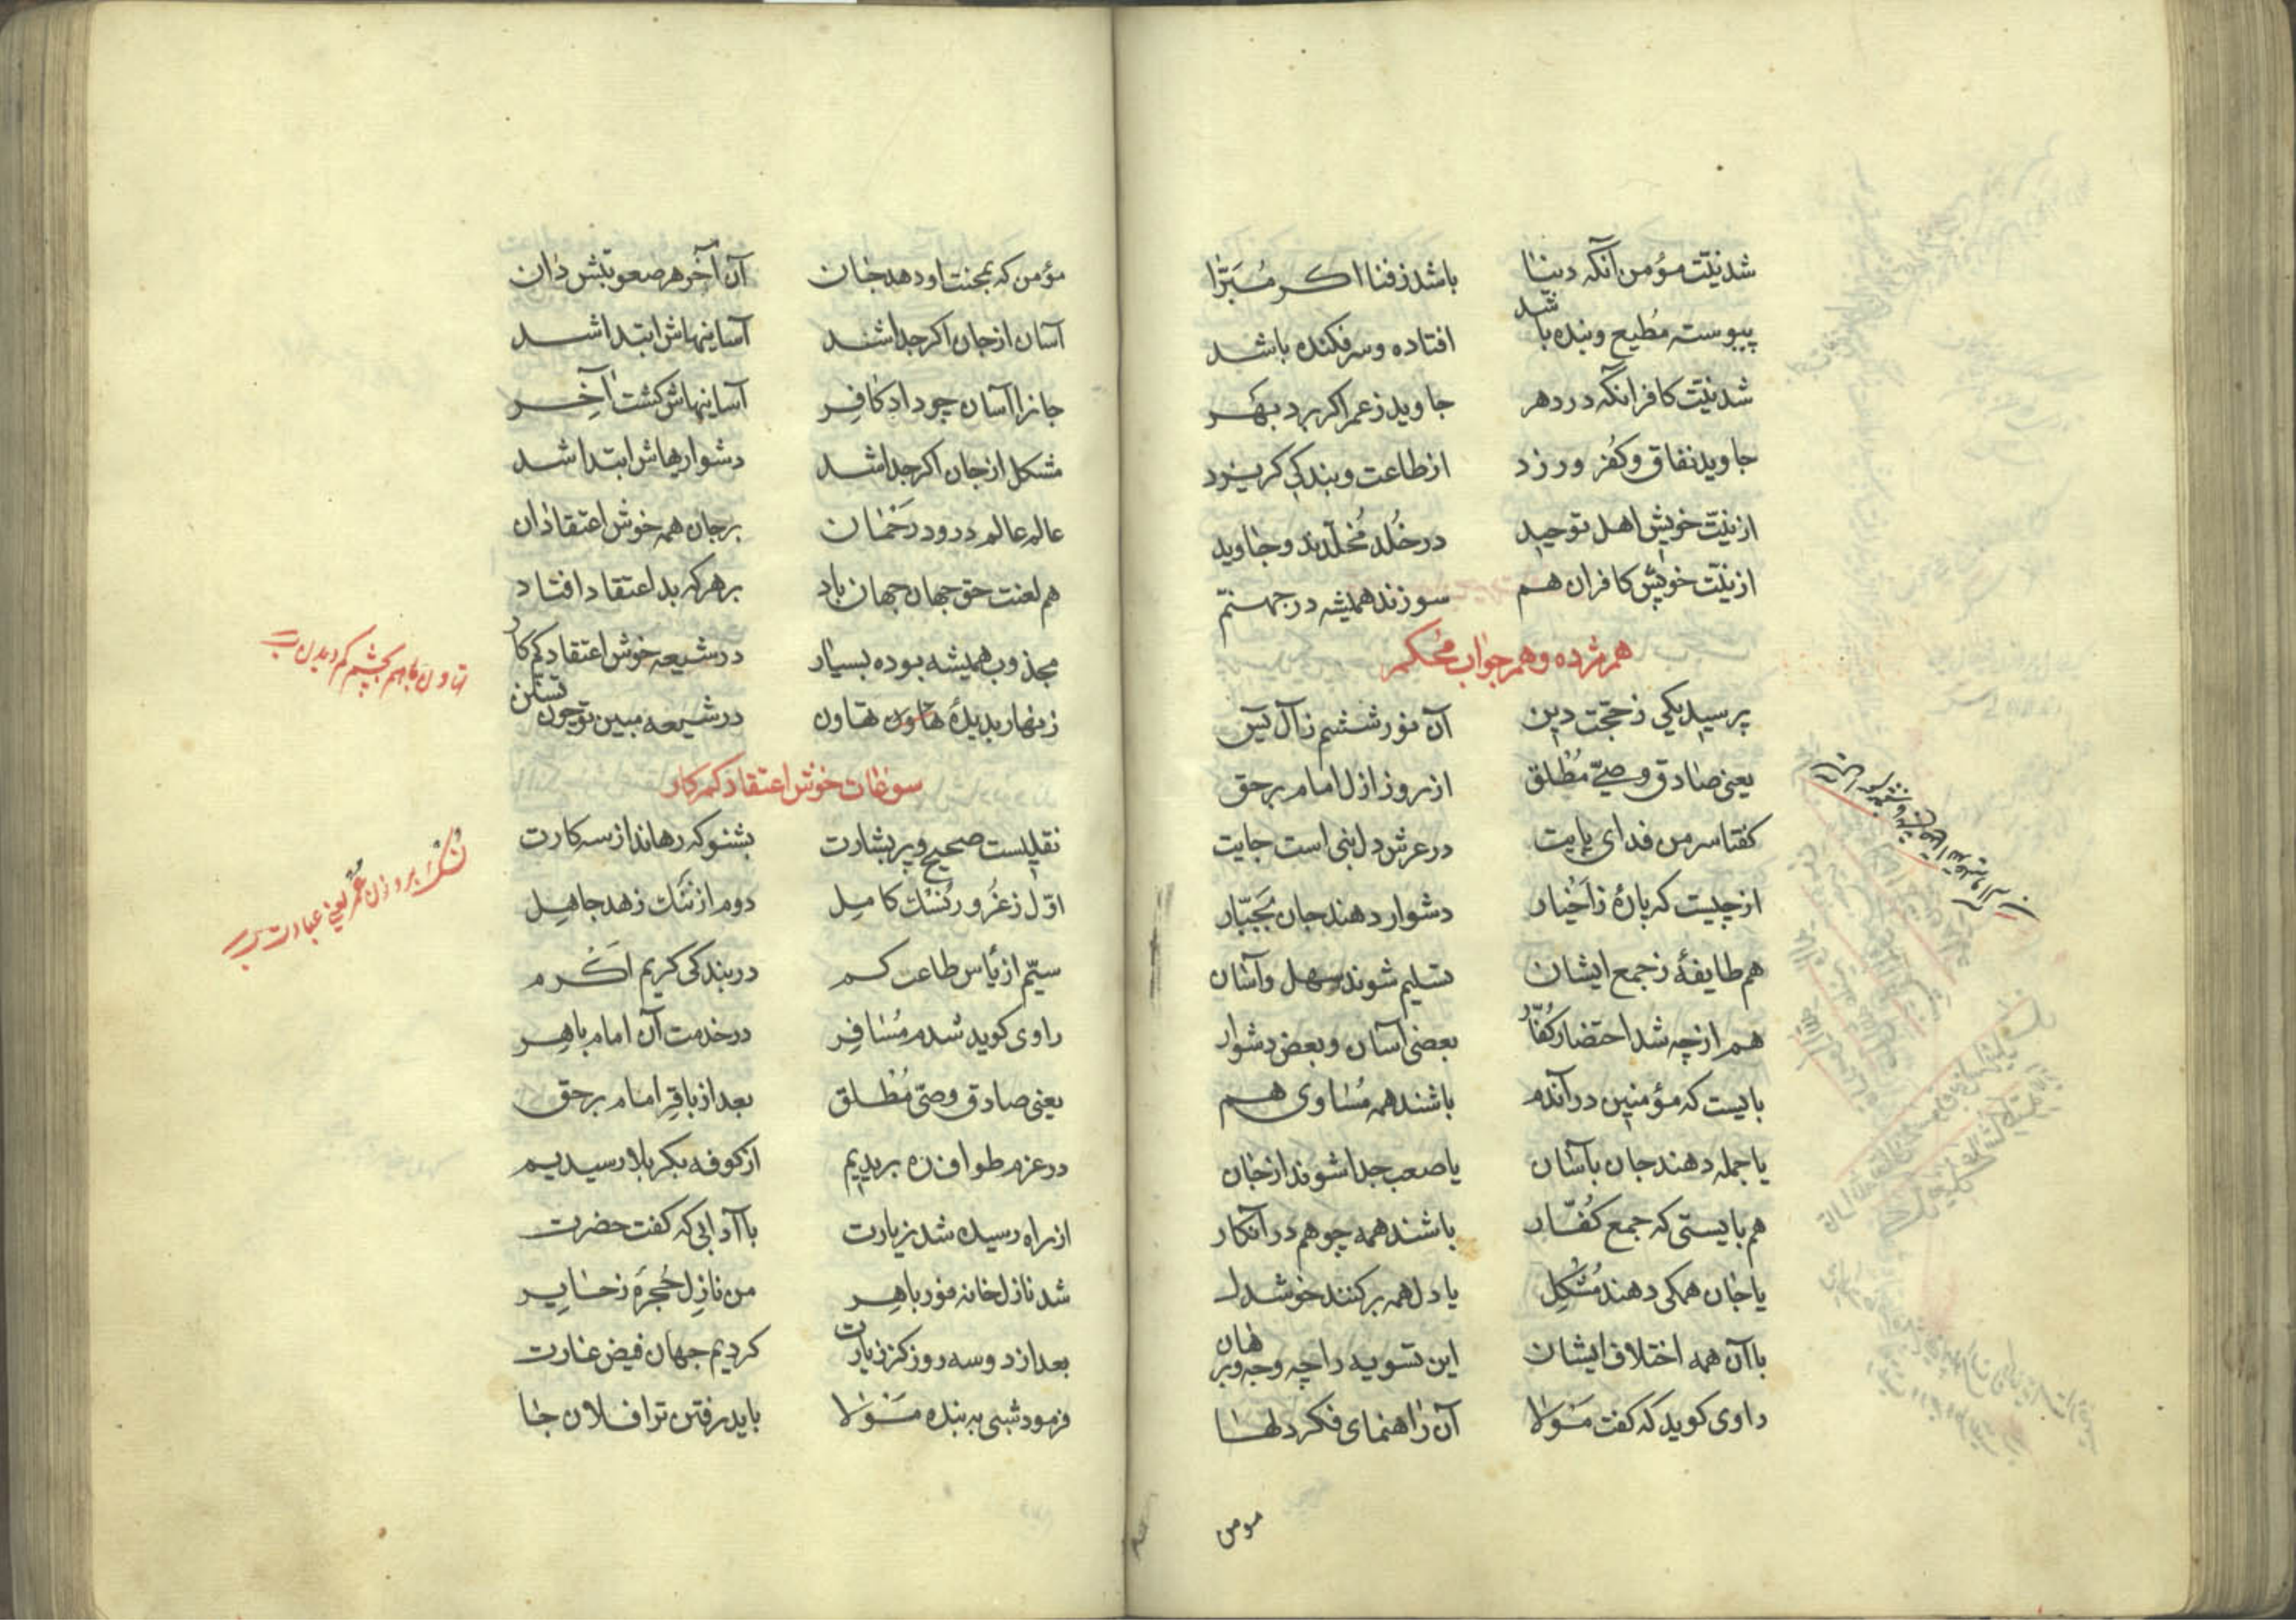 شد نیّت مؤمن آنکه دنیا باشد ز فنا اکر مُبَرّا
پیوسته مُطیع و بنده باشد افتاده و سرفکنده باشد
شد نیّت کافر آنکه در دهر جاوید ز عمر اکر برد بهر
جاوید نفاق و کفر ورزد از طاعت و بندکی کریزد
از نیّت خویش اهل توحید در خُلد مُخلّدند و جاوید
از نیّت خویش کافران هم سوزند همیشه در جهنّم
هم مژده و هم جواب محکم
پرسید یکی ز حجّت دین آن نور ششم ز آل یٓس
یعنی صادق وصیّ مُطلق از روز ازل امام برحق
کفتا سر من فدای پایت در عرش دل نبی است جایت
از چیست که پارهٔ ز اَخیار دشوار دهند جان بجَبّار
هم طایفهٔ ز جمع ایشان تسلیم شوند سهل و آسان
هم از چه شد احتضار کُفّار بعضی آسان و بعض دشوار
بایست که مؤمنین در آندم باشند همه مُساوی هم
یا جمله دهند جان بآسان یا صعب جدا شوند از جان
هم بایستی که جمع کُفّار باشند همه چو هم در آنکار
یا جان همکی دهند مُشکِل یا دل همه برکنند خوشدل
با آن همه اختلاف ایشان این تسویه را چه وجه و برهان
راوی کوید که کفت مَولا آن راهنمای فکر دلها
مومن
مؤمن که بمحنت او دهد جان آن آخر هر صعوبتش دان
آسان از جان اکر جدا شد آسانیهاش ابتدا شد
جانرا آسان چو داد کافِر آسانیهاش کشت آخِر
مشکل از جان اکر جدا شد دشواریهاش ابتدا شد
عالم عالم درود رَحمان بر جان همه خوش اعتقادان
هم لعنت حق جهان جهان باد بر هر که بد اعتقاد افتاد
مجذوب همیشه بوده بسیار در شیعه خوش اعتقاد کم کار
زنهار بدیدهٔ تهاون در شیعه مبین تو چون تسنّن
تهاون باهم بچشم کم دیدن
سوغات خوش اعتقاد کم کار
نقلیست صحیح و پر بشارت بشنو که رهاند از سه کارت
اوّل ز غُرور نُسُک کامل دوم از نَنک زهد جاهِل
نُسُک بر وزن عُمُر یعنی عبادت
سیّم از یأس طاعت کم در بندکی کریم اَکرم
راوی کوید شدم مُسافِر در خدمت آن امام باهِر
یعنی صادق وصیّ مُطلق بعد از باقِر امام برحق
در عزم طواف ره بریدیم از کوفه بکربلا رسیدیم
از راه رسیده شد زیارت با آدابی که کفت حضرت
شد نازل خانه نور باهِر من نازِل حُجرهٔ ز حایر
بعد از دو سه روز کز زیارت کردیم جهان فیض غارت
فرمود شبی به بنده مَولا باید رفتن ترا فلان جا